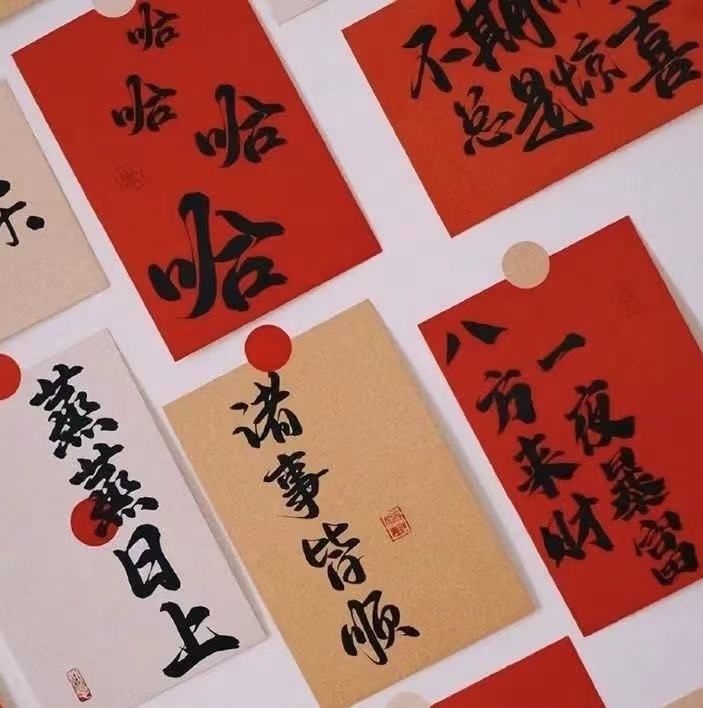 哈
哈
哈
哈
不期而
总是惊喜
乐
蒸蒸日上
诸事皆顺
一夜暴富
八方来财